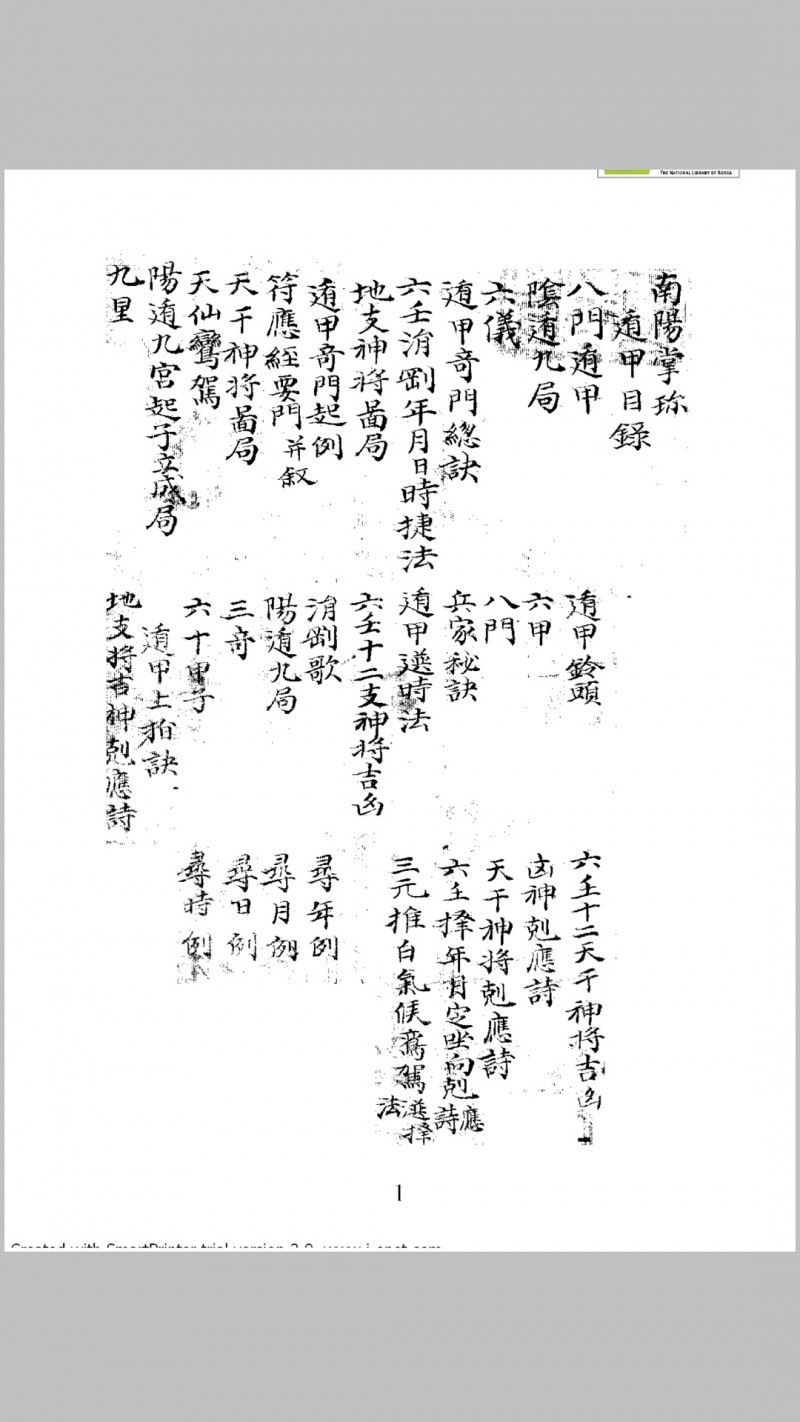 THE NATIONAL LIBRARY OF KOREA
南陽掌珎
遁甲目錄
八門遁甲
遁甲鈴頭
六壬十二天干神将吉凶
陰遁九局
六甲
凶神剋應詩
六儀
八門
天干神将剋應詩
遁甲奇門總訣
兵家秘訣
六壬擇年月定坐向剋應詩
六壬淯剛年月日時捷法
遁甲選時法
三元推白氣候鸞駕選擇法
地支神将啚局
六壬十二支神将吉凶
遁甲奇門起例
淯剛歌
尋年例
符應經要門并叙
陽遁九局
尋月例
天干神将啚局
三奇
尋日例
天仙鸞駕
六十甲子
尋時例
陽遁九宮起子立成局
遁甲上拍訣
九星
地支将吉神剋應詩
1
Created with SmartPrinter trial version